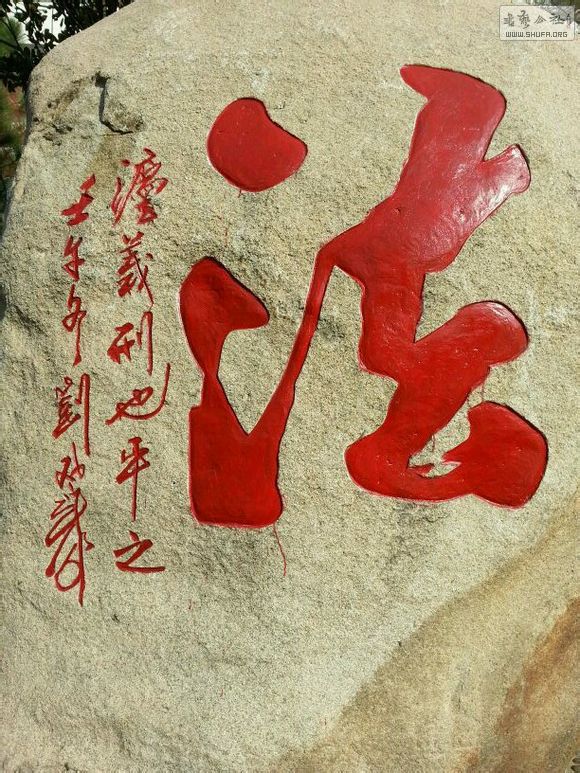 書藝公社
WWW.SHUFA.ORG
法
灋義刑也平之
壬午冬劉